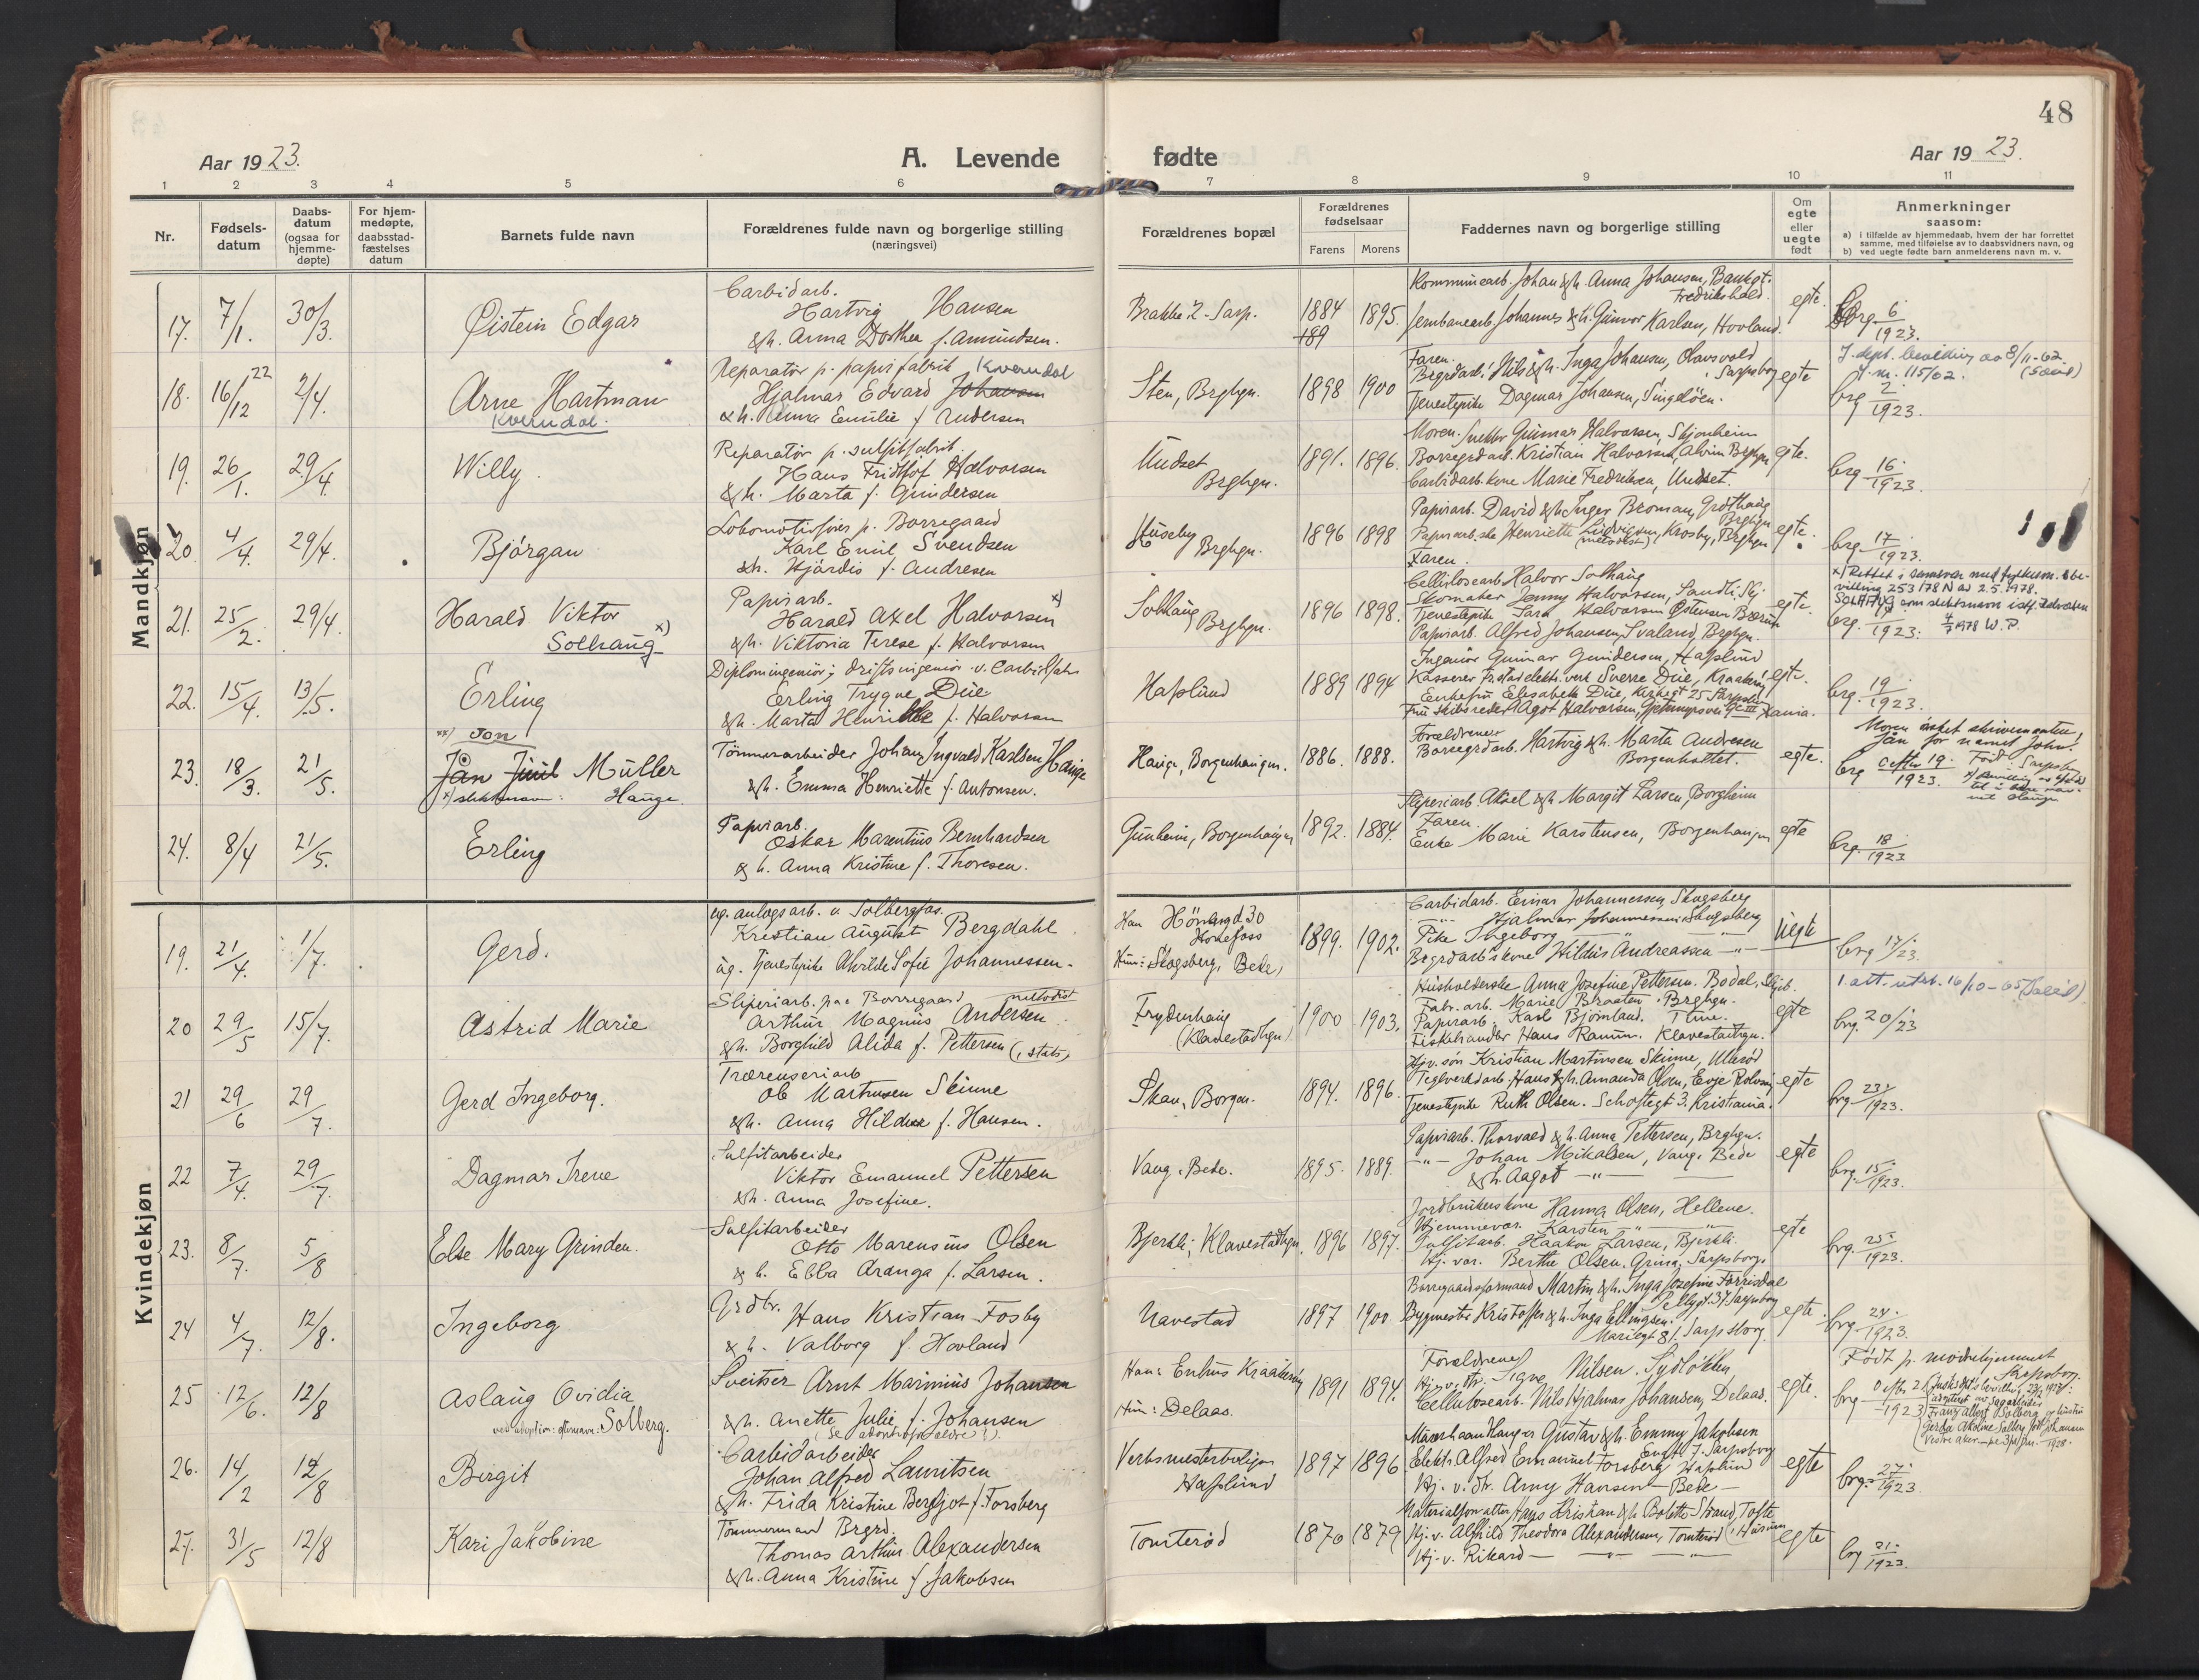 48
Aar 1923.
A. Levende
fødte
Aar 1923.
1 2 3 4 5 6 7 8 9 10 11
Nr.
Fødsels-
datum
Daabs-
datum
(ogsaa for
hjemme-
døpte)
For hjem-
medøpte,
daabsstad-
fæstelses
datum
Barnets fulde navn
Forældrenes fulde navn og borgerlige stilling
(næringsvei)
Forældrenes bopæl
Forældrenes
fødselsaar
Farens Morens
Faddernes navn og borgerlige stilling
Om
egte
eller
uegte
født
Anmerkninger
saasom:
a) i tilfælde av hjemmedaab, hvem der har forrettet
samme, med tilføielse av to daabsvidners navn, og
b) ved uegte fødte barn anmelderens navn m. v.
Mandkjøn
17. 7/1. 30/3. Øistein Edgar
Carbidarb.
Hartvig Hansen
& h. Anna Dorthea f. Amundsen.
Brakke 2 - Sarp. 1884 +89 1895.
Kommunearb. Johan & h. Anna Johansen, Bankgt.
Fredrikshald.
Jernbanearb. Johannes & h. Gunvor Karlsen, Hovland.
egte.
Brg. 6/1923.
18. 16/12 22 2/4. Arne Hartman
Kverndal.
Reparatør p. papirfabrik Kverndal
Hjalmar Edvard Johansen
& h. Anna Emilie f. Andersen
Sten, Brghgn. 1898 1900
Faren.
Brgrdarb. Nils & h. Inga Johansen, Olavsvold
Sarpsborg
Tjenestepike Dagmar Johansen, Singeløen.
egte
J. dept. bevilling av 8/11-62
J. nr. 115/62.
brg 2/1923.
19. 26/1. 29/4. Willy
Reparatør p. sulfitfabrik
Hans Fridthjof Halvorsen
& h. Marta f. Gundersen
Undset
Brghgn.
1891. 1896.
Moren. Snekker Gunnar Halvorsen, Skjonheim
Borregrdarb. Kristian Halvorsen, Alvim Brghgn
Carbidarb. kone Marie Fredriksen, Undset.
egte.
brg 16/1923.
20. 4/4. 29/4. Bjørgan
Lokomotivfører p. Borregaard
Karl Emil Svendsen
& h. Hjørdis f. Andresen
Huseby Brghgn. 1896 1898
Papirarb. David & h. Inger Broman, Grotthaug
Brghgn
Papirarb.ske Henriette Ludvigsen, Krosby, Brghgn
(metodist)
Faren.
egte.
brg. 17/1923.
21. 25/2. 29/4. Harald Viktor
Solhaug x)
Papirarb.
Harald Axel Halvorsen x)
& h. Viktoria Terese f. Halvorsen
Solhaug, Brghgn. 1896 1898.
Cellulosearb. Halvor Solhaug
Skomaker Jenny Halvorsen, Sandli, Skj.
Tjenestepike Sara Halvorsen Østensen Bærum
Papirarb. Alfred Johansen, Svaland, Brghgn.
egte.
x) Rettet i samsvar med fylkesm. be-
villing 253178 N av 2.5.1978.
SOLHAUG som slektsnavn istf. Halvorsen
1978 W.P.
brg. /1923.
22. 15/4. 13/5. Erling
Diplomingeniør; driftsingeniør v. Carbidfabr.
Erling Trygve Due
& h. Marta Henriette f. Halvorsen
Hafslund 1889 1894
Ingeniør Gunnar Gundersen, Hafslund
Kasserer Fr.stad elektr. verk Sverre Due, Kraakerøy
Enkefru Elisabeth Due, Kirkegt 25 Sarpsborg
Fru skibsreder Agot Halvorsen, Gjetemyrsvei 9c III Kania.
egte.
brg. 19/1923.
23. 18/3. 21/5.
xx) Jon
Jån Juul Müller
x) slektsnavn: Hauge.
Tømmerarbeider Johan Ingvald Karlsen Hauge
& h. Emma Henriette f. Antonsen.
Hauge, Borgenhaugen. 1886. 1888.
Forældrene
Borregrdarb. Hartvig & h. Marta Andresen
Borgenholtet.
egte.
Moren ønsket skrivemaaten,
Jån for navnet John.
Født i Sarpsborg
brg efter 19/1923.
24. 8/4 21/5. Erling
Papirarb.
Oskar Marentius Bernhardsen
& h. Anna Kristine f. Thoresen.
Gunheim, Borgenhaugen 1892. 1884.
Sliperiarb. Aksel & h. Margit Larsen, Borgheim
Faren.
Enke Marie Karstensen, Borgenhaugen
egte
brg. 18/1923
Kvindekjøn
19. 21/4. 1/7. Gerd.
ug. anlegsarb. v. Solbergfos.
Kristian August Bergdahl
ug. Tjenestepike Alvilde Sofie Johannessen.
Han Hønengd 30
Hønefoss
Hun: Skogsberg, Bede,
1899. 1902.
Carbidarb. Einar Johannessen, Skogsberg
Hjalmar Johannessen Skogsberg
Pike Ingeborg — " — " —
Brgrdarb's kone Hildur Andreassen — " —
Uegte
brg 17/23.
20 29/5 15/7. Astrid Marie
Sliperiarb. paa Borregaard metodist
Arthur Magnus Andersen
& h. Borghild Alida f. Pettersen (, stats,
Frydenhaug
(Klavestadhgn) 1900 1903.
Husholderske Anna Josefine Pettersen. Bodal, Skjeb.
Fabr. arb. Marie Braaten. Brghgn.
Papirarb. Karl Bjørnland. Tune.
Fiskehandler Hans Ramm. Klavestadhgn.
egte
1 att. utst. 16/10-65
brg. 20/23
21 29/6 29/7. Gerd Ingeborg.
Trærenseriarb
Ole Martinsen Skinne
& h. Anna Hilda f. Hansen.
Skau, Borgen. 1894. 1896.
Hjv. søn Kristian Martinsen Skinne, Ulerød
Teglverkarb. Hans & h. Amanda Olsen, Evje Rolvsøy
Tjenestepike Ruth Olsen. Schøftegt 3. Kristiania.
egte
brg. 23/1923.
22 7/4. 29/7. Dagmar Irene
Sulfitarbeider
Viktor Emanuel Pettersen
& h. Anna Josefine.
Vang, Bede. 1895. 1889.
Papirarb. Thorvald & h. Anna Pettersen, Brghgn.
— " — Johan Mikalsen, Vang, Bede
& h. Aagot — " —
egte
brg. 15/1923.
23. 8/7. 5/8 Else Mary Grinden.
Sulfitarbeider
Otto Marensius Olsen
& h. Ebba Aranga f. Larsen.
Bjerkli, Klavestadhgn. 1896 1897.
Jordbrukerskone Hanna Olsen, Hellene.
Hjemmevær. Karsten — " — " —
Sulfitarb. Haakon Larsen, Bjerkli.
Hj. vær. Berthe Olsen. Grina, Sarpsborg.
egte
brg. 25/1923.
24 4/7. 12/8. Ingeborg
Grdbr. Hans Kristian Fosby
& h. Valborg f. Hovland
Navestad 1897 1900
Borregaardsformand Martin & h. Inga Josefine Torrisdal
Pellygt. 37 Sarpsborg
Bygmester Kristoffer & h. Inga Ellingsen.
Mariegt 81. Sarpsborg.
egte.
brg. 24/1923.
25 12/6. 12/8 Aslaug Ovidia
ved adoption: efternavn: Solberg.
Sveitser Arnt Marinius Johansen
& h. Anette Julie f. Johansen
(Se adoptivforældre!).
Han: Enhus Kraakerøy
Hun: Delaas.
1891 1894.
Forældrene
Hj. v. dtr. Signe Nilsen. Sydløkken,
Cellulosearb. Nils Hjalmar Johansen, Delaas.
egte.
Født p. mødrehjemmet
Sarpsborg.
brg. efter 21/1923
26. 14/2 12/8 Birgit
Carbidarbeider
Johan Alfred Lauritsen
& h. Frida Kristine Bergljot f. Forsberg
Verksmesterboligen
Hafslund
1897 1896
Gustav & h. Emmy Jakobsen
Engt. 7. Sarpsborg
Elektr. Alfred Emanuel Forsberg Hafslund
Hj. v. dtr. Amy Hansen — Bede —
egte
brg. 27/1923.
27. 31/5 12/8 Kari Jakobine
Tømmermand Brgrd.
Thomas Arthur Alexandersen
& h. Anna Kristine f. Jakobsen
Tomterød 1870 1879
Materialforvalter Hans Kristian & h. Bolette Strand, Tofte
Hj. v. Alfhild Theodora Alexandersen, Tomterød (i Hurum
Hj. v. Rikard — " — " —
egte
brg 31/1923.